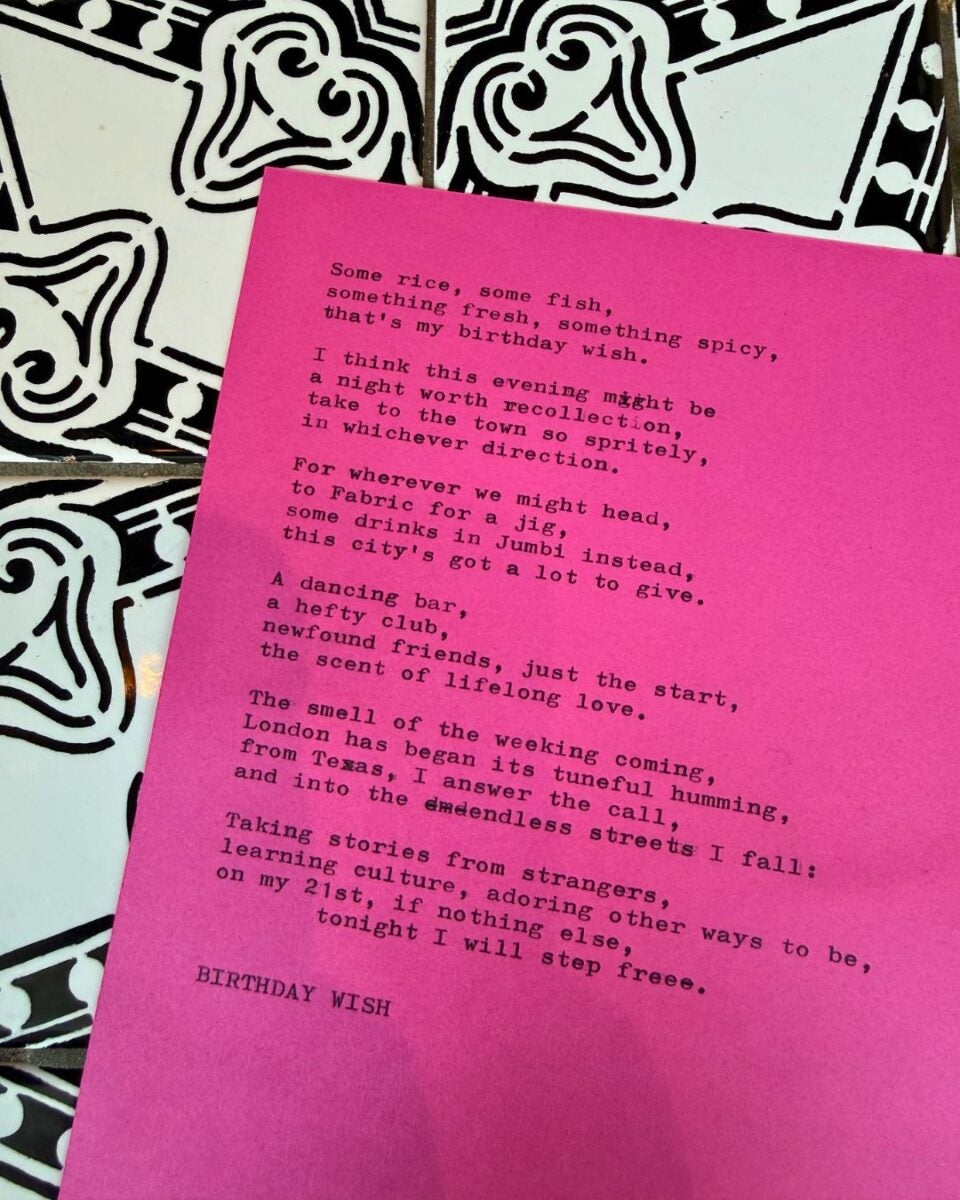 Some rice, some fish,
something fresh, something spicy,
that's my birthday wish.
I think this evening might be
a night worth recollection,
take to the town so spritely,
in whichever direction.
For wherever we might head,
to Fabric for a jig,
some drinks in Jumbi instead,
this city's got a lot to give.
A dancing bar,
a hefty club,
newfound friends, just the start,
the scent of lifelong love.
The smell of the weeking coming,
London has began its tuneful humming,
from Texas, I answer the call,
and into the endless streets I fall:
Taking stories from strangers,
learning culture, adoring other ways to be,
on my 21st, if nothing else,
tonight I will step freee.
BIRTHDAY WISH